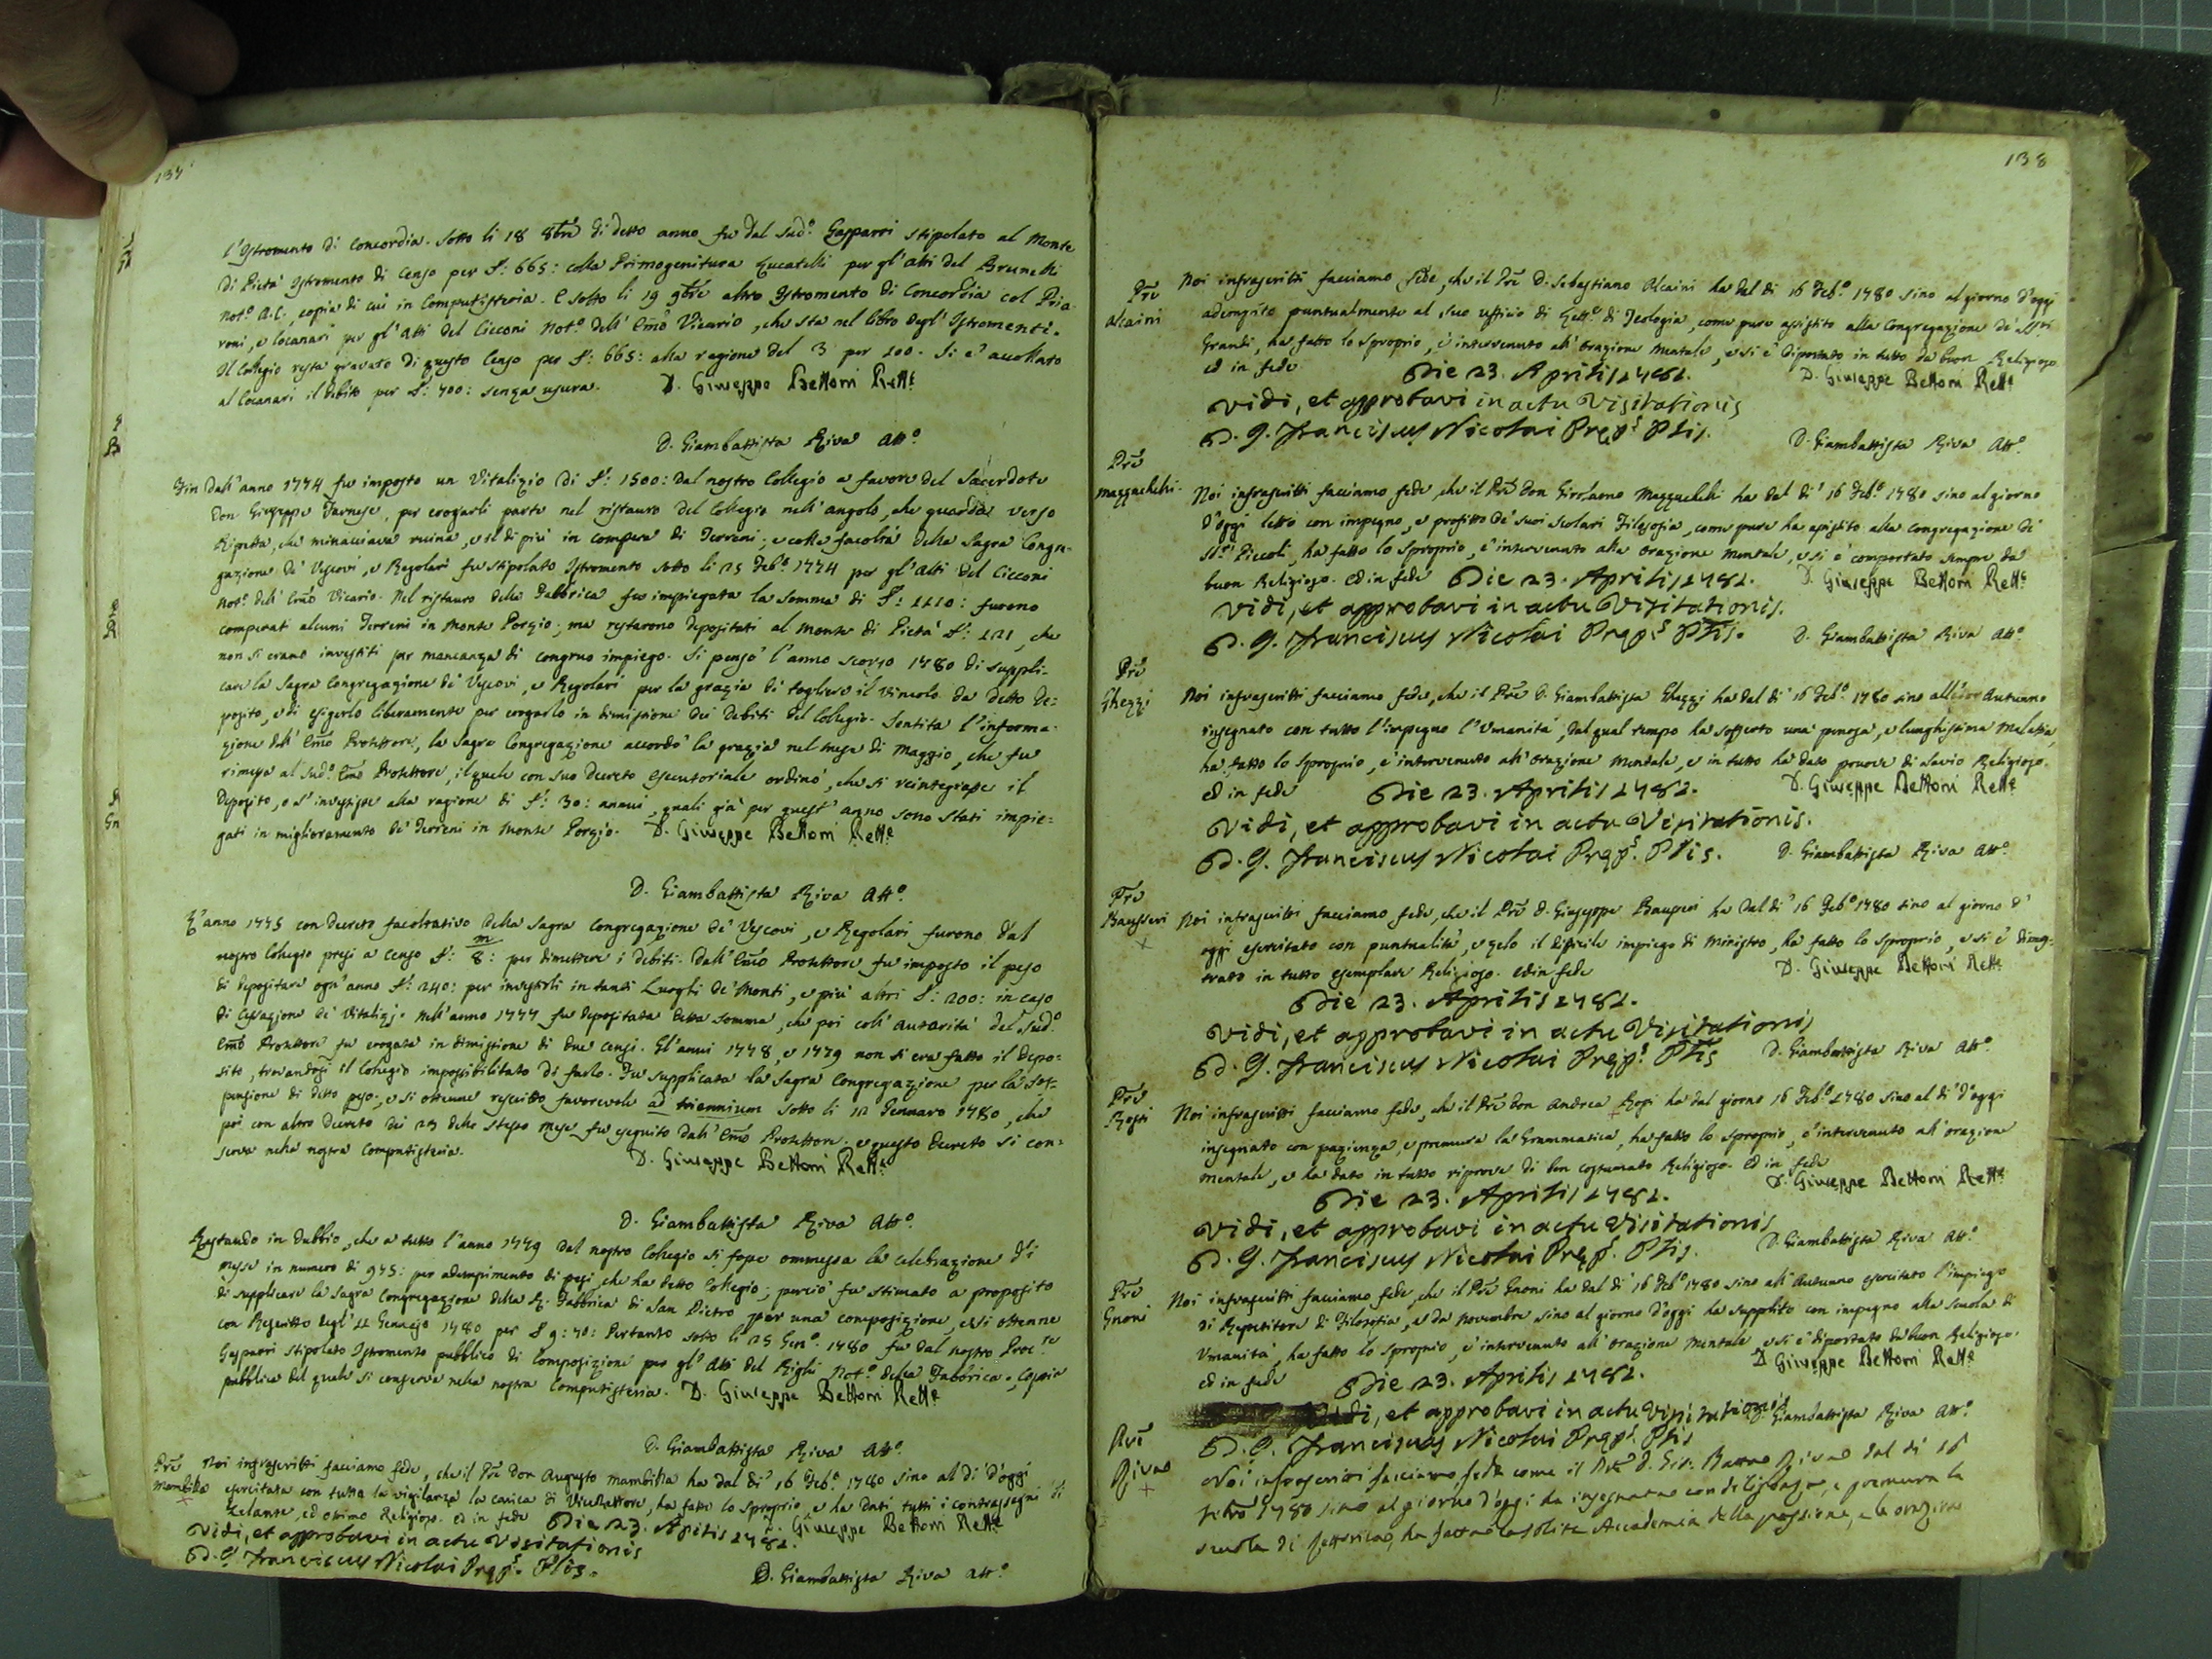 137
l'Istromento di Concordia. Sotto li 18 8bre di detto anno fu dal sud.o Gasparri stipolato al Monte
di Pietà Istromento di Censo per S: 665: colla Primogenitura Lucatelli per gl'atti del Brunelli
Not.o A.C., copia di cui in Computisteria. E sotto li 19 9bre altro Istromento di Concordia col Pria-
roni, e Locanari per gl'atti del Cicconi Not.o dell'Emo Vicario, che sta nel libro degl'Istromenti.
Il Collegio resta gravato di questo Censo per S: 665: alla ragione del 3 per 100. Si è accollato
al Locanari il debito per S: 400: senza usura. D. Giuseppe Bettoni Rett.e
D. Giambattista Riva Att.o
Fin dall'anno 1774 fu imposto un Vitalizio di S: 1500: dal nostro Collegio a favore del Sacerdote
Don Giuseppe Farnese, per erogarli parte nel ristauro del Collegio nell'angolo, che guarda verso
Ripetta, che minacciava ruina, e il di più in compera di Terreni; e colla facoltà della Sagra Congre-
gazione de' Vescovi, e Regolari fu stipolato Istromento sotto li 25 Feb.o 1774 per gl'atti del Cicconi
Not.o dell'Emo Vicario. Nel ristauro della Fabbrica fu impiegata la somma di S: 1110: furono
comperati alcuni Terreni in Monte Porzio; ma restarono depositati al Monte di Pietà S: 121, che
non si erano investiti per mancanza di congruo impiego. Si pensò l'anno scorso 1780 di suppli-
care la Sagra Congregazione de' Vescovi, e Regolari per la grazia di togliere il vincolo da detto De-
posito, e di esigerlo liberamente per erogarlo in dimissione dei debiti del Collegio. Sentita l'informa-
zione dell'Emo Protettore, la Sagra Congregazione accordò la grazia nel mese di Maggio, che fu
rimessa al sud.o Emo Protettore, il quale con suo Decreto esecutoriale ordinò, che si reintegrasse il
Deposito, e s'investisse alla ragione di S: 30: annui, quali già per quest'anno sono stati impie-
gati in miglioramento de' Terreni in Monte Porzio. D. Giuseppe Bettoni Rett.e
D. Giambattista Riva Att.o
L'anno 1775 con decreto facoltativo della Sagra Congregazione de' Vescovi, e Regolari furono dal
nostro Collegio presi a censo S: 8m: per dimettere i debiti. Dall'Emo Protettore fu imposto il peso
di depositare ogn'anno S: 240: per investirli in tanti Luoghi de' Monti, e più altri S: 200: in caso
di cessazione de' Vitalizj. Nell'anno 1777 fu depositata detta somma, che poi coll'autorità del sud.o
Emo Protettore fu erogata in dimissione di due censi. Gl'anni 1778, e 1779 non si era fatto il depo-
sito, trovandosi il Collegio impossibilitato di farlo. Fu supplicata la Sagra Congregazione per la sos-
pensione di detto peso, e si ottenne rescritto favorevole ad triennium sotto li 12 Gennaro 1780, che
poi con altro Decreto dei 29 dello stesso mese fu eseguito dall'Emo Protettore. e questo decreto si con-
serva nella nostra Computisteria. D. Giuseppe Bettoni Rett.e
D. Giambattista Riva Att.o
Restando in dubbio, che a tutto l'anno 1779 dal nostro Collegio si fosse ommessa la celebrazione di
messe in numero di 945: per adempimento di pesi, che ha detto Collegio; perciò fu stimato a proposito
di supplicare la Sagra Congregazione della R. Fabbrica di San Pietro per una composizione, e si ottenne
con Rescritto degl'11 Gennajo 1780 per S 9: 40: Pertanto sotto li 25 Gen.o 1780 fu dal nostro Proc.re
Gasparri stipolato Istromento pubblico di Composizione per gl'Atti del Righi Not.o della Fabbrica, Copia
pubblica del quale si conserva nella nostra Computisteria. D. Giuseppe Bettoni Rett.e
D. Giambattista Riva Att.o
Pre Mambilla Noi infrascritti facciamo fede, che il Pre Don Augusto Mambilla ha dal dì 16 Feb.o 1780 sino al dì d'oggi
esercitata con tutta la vigilanza la carica di ViceRettore, ha fatto lo sproprio, e ha dati tutti i contrassegni di
zelante, ed ottimo Religioso. ed in fede D. Giuseppe Bettoni Rett.e
Die 23. Aprilis 1781.
Vidi, et approbavi in actu Visitationis
D. G. Franciscus Nicolai Præp.s Plis.
D. Giambattista Riva Att.o
138
Pre Alcaini Noi infrascritti facciamo fede, che il Pre D. Sebastiano Alcaini ha dal dì 16 Feb.o 1780 sino al giorno d'oggi
adempito puntualmente al suo ufficio di Lett.e di Teologia, come pure assistito alla Congregazione de' SSri
Grandi, ha fatto lo sproprio, è intervenuto all'orazione mentale, e si è diportato in tutto da buon Religioso
ed in fede D. Giuseppe Bettoni Rett.e
Die 23. Aprilis 1781.
Vidi, et approbavi in actu Visitationis
D. G. Franciscus Nicolai Præp.s Plis.
D. Giambattista Riva Att.o
Pre Mazzuchelli Noi infrascritti facciamo fede, che il Pre Don Girolamo Mazzuchelli ha dal dì 16 Feb.o 1780 sino al giorno
d'oggi letto con impegno, e profitto de' suoi scolari Filosofia, come pure ha assistito alla Congregazione de'
SS.ri Piccoli, ha fatto lo sproprio, è intervenuto alla orazione mentale, e si è comportato sempre da
buon Religioso. ed in fede D. Giuseppe Bettoni Rett.e
Die 23. Aprilis 1781.
Vidi, et approbavi in actu Visitationis.
D. G. Franciscus Nicolai Præp.s Plis.
D. Giambattista Riva Att.o
Pre Ghezzi Noi infrascritti facciamo fede, che il Pre D. Giambattista Ghezzi ha dal dì 16 Feb.o 1780 sino all' Autunno
insegnato con tutto l'impegno l'Umanità, dal qual tempo ha sofferto una penosa, e lunghissima malattia,
ha fatto lo sproprio, è intervenuto all'orazione mentale, e in tutto ha dato prove di savio Religioso.
ed in fede D. Giuseppe Bettoni Rett.e
Die 23. Aprilis 1781.
Vidi, et approbavi in actu Visitationis.
D. G. Franciscus Nicolai Præp.s Plis.
D. Giambattista Riva Att.o
Pre Bausseri Noi infrascritti facciamo fede, che il Pre D. Giuseppe Bausseri ha dal dì 16 Feb.o 1780 sino al giorno d'
oggi esercitato con puntualità, e zelo il difficile impiego di Ministro, ha fatto lo sproprio, e si è dimos-
trato in tutto esemplare Religioso. ed in fede D. Giuseppe Bettoni Rett.e
Die 23. Aprilis 1781.
Vidi, et approbavi in actu Visitationis
D. G. Franciscus Nicolai Præp.s Plis
D. Giambattista Riva Att.o
Pre Rossi Noi infrascritti facciamo fede, che il Pre Don Andrea Rossi ha dal giorno 16 Feb.o 1780 sino al dì d'oggi
insegnato con pazienza, e premura la Grammatica, ha fatto lo sproprio, è intervenuto all'orazione
mentale, e ha dato in tutto riprove di ben costumato Religioso. ed in fede
D. Giuseppe Bettoni Rett.e
Die 23. Aprilis 1781.
Vidi, et approbavi in actu Visitationis
D. G. Franciscus Nicolai Præp.s Plis.
D. Giambattista Riva Att.o
Pre Gnoni Noi infrascritti facciamo fede, che il Pre Gnoni ha dal dì 16 Feb.o 1780 sino all'Autunno esercitato l'impiego
di Repetitore di Filosofia, e da Novembre sino al giorno d'oggi ha supplito con impegno alla scuola di
Umanità, ha fatto lo sproprio, è intervenuto all'orazione mentale e si è diportato da buon Religioso.
ed in fede D. Giuseppe Bettoni Rett.e
Die 23. Aprilis 1781.
Vidi, et approbavi in actu Visitationis
D. Giambattista Riva Att.o
D. G. Franciscus Nicolai Præp.s Plis
Pre Riva Noi infrascritti facciamo fede come il Pre D. Gio: Batta Riva dal dì 16
Febro 1780 sino al giorno d'oggi ha insegnato con diligenza, e premura la
scuola di Rettorica, ha fatto la solita Accademia della passione, e la orazione